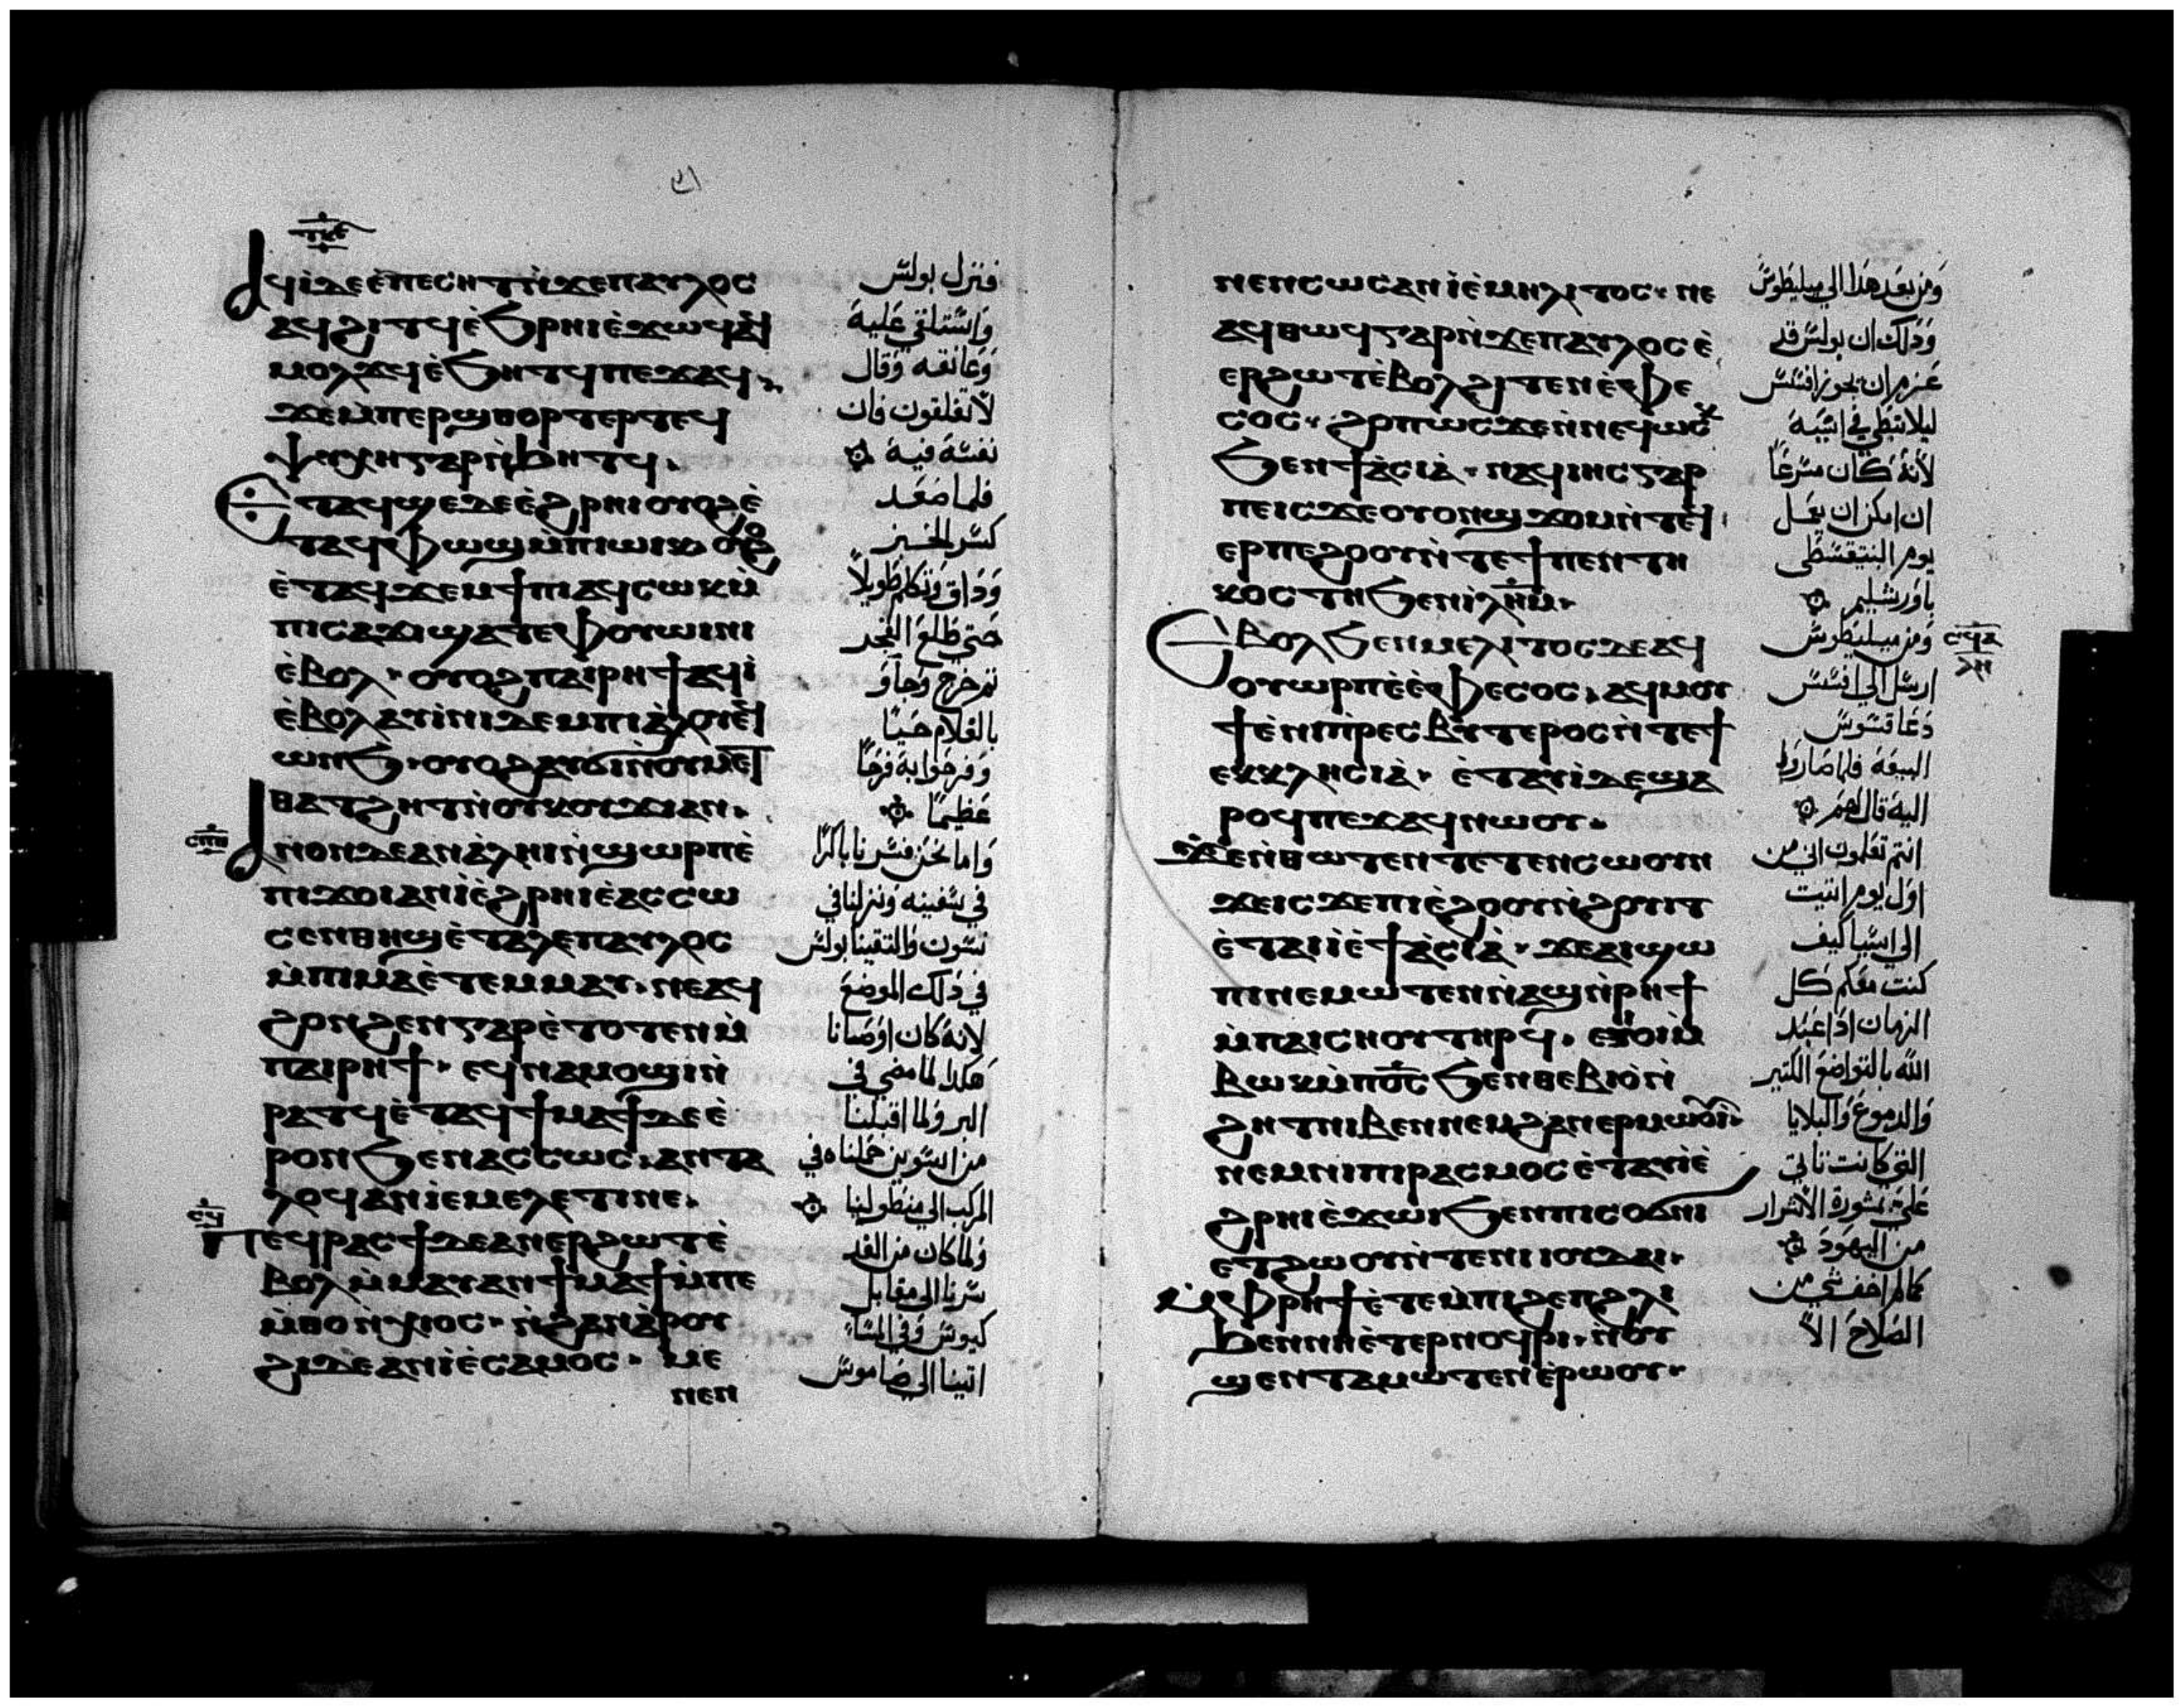 ⲁϥⲓⲇⲉⲉ̀ⲡⲉⲥⲏⲧⲛ̀ϫⲉⲡⲁⲩⲗⲟⲥ
ⲁϥϩⲓⲧϥⲉ̀ϧⲣⲏⲓⲉ̀ϫⲱϥⲁϥ
ⲙⲟⲗϫϥⲉ̀ϧⲏⲧϥⲡⲉϫⲁϥ
ϫⲉⲙ̀ⲡⲉⲣϣⲑⲟⲣⲧⲉⲣⲧⲉϥ
ⲯⲩⲭⲏⲅⲁⲣⲛ̀ϧⲏⲧϥ
ⲉⲧⲁϥϣⲉⲇⲉⲉ̀ϩⲣⲏⲓⲟⲩⲟϩⲉ̀
ⲧⲁϥⲫⲱϣⲙ̀ⲡⲓⲱⲓⲕⲟⲩⲟϩ
ⲉ̀ⲧⲁϥϫⲉⲙϯⲡⲓⲁϥⲥⲱⲕⲙ̀
ⲡⲓⲥⲁϫⲓϣⲁⲧⲉⲫⲟⲩⲱⲓⲛⲓ
ⲉ̀ⲃⲟⲗ⸱ⲟⲩⲟϩⲡⲁⲓⲣⲏϯⲁϥⲓ̀
ⲉ̀ⲃⲟⲗⲁⲩⲓ̀ⲛⲓⲇⲉⲙⲡⲓⲁ̀ⲗⲟⲩⲉϥ
ⲱⲛϧ⸱ⲟⲩⲟϩⲁⲩϭⲓⲛ̀ⲟⲩⲙⲉⲧ
ⲑⲁⲧϩⲏⲧⲛ̀ⲟⲩⲕⲟⲩϫⲓⲁⲛ⸱
ⲥⲡⲑ
ⲁⲛⲟⲛⲇⲉⲁⲛⲁ̀ⲗⲏⲓⲛ̀ϣⲱⲣⲡⲉ̀
ⲡⲓϫⲟⲓⲁⲛⲓ̀ⲉ̀ϩⲣⲏⲓⲉ̀ⲁⲥⲥⲱ
ⲥⲉⲛⲑⲏϣⲉ̀ⲧⲁⲗⲉⲡⲁⲩⲗⲟⲥ
ⲙ̀ⲡⲓⲙⲁⲉ̀ⲧⲉⲙⲙⲁⲩ⸱ⲛⲉⲁϥ
ϩⲟⲛϩⲉⲛⲅⲁⲣⲉ̀ⲧⲟⲧⲉⲛⲙ̀
ⲡⲁⲓⲣⲏϯ⸱ⲉϥⲛⲁⲙⲟϣⲓⲛ̀
ⲣⲁⲧϥⲉ̀ⲧⲁϥϯⲙⲁϯⲇⲉⲉ̀
ⲣⲟⲛϧⲉⲛⲁⲥⲥⲱⲥ⸱ⲁⲛⲧⲁ
ⲗⲟϥⲁⲛⲓ̀ⲉⲙⲉⲗⲉⲧⲓⲛⲉ⸱
ⲥϥ
ⲡⲉϥⲣⲁⲥϯⲇⲉⲁⲛⲉⲣϩⲱⲧⲉ̀
ⲃⲟⲗⲙ̀ⲙⲁⲩⲁⲛϯⲙⲁϯⲙ̀ⲡⲉ
ⲙ̀ⲑⲟⲛ̀ⲭⲓⲟⲥ⸱ⲛ̀ϩⲁⲛⲁ̀ⲣⲟⲩ
ϩⲓⲇⲉⲁⲛⲓ̀ⲉ̀ⲥⲁⲙⲟⲥ⸱ⲙⲉ
ⲛⲉⲛ
فنزل بولس
واستلقي عليه
وعانقه وقال
لا تقلقون فان
نفسه فيه
فلما صعد
كسر الخبز
وذاق وتكلم طويلاً
حتي طلع الفجر
ثم خرج وجاو
بالغلام حياً
وفرحوا به فرحاً
عظيماً
واما نحن فسرنا باكراً
في سفينه ونزلنا في
سون والتقينا بولس
في ذلك الموضع
لانه كان اوصانا
هكذا لما مضي في
البر ولما اقبلنا
من اسوين حملناه في
المركب الي منطولينا
ولما كان من الغد
سرنا الي مقابل
كيوس وفي المسا
اتينا الي صاموس
ⲛⲉⲛⲥⲱⲥⲁⲛⲓ̀ⲉ̀ⲙⲏⲗⲓⲧⲟⲥ⸱ⲛⲉ
ⲁϥⲑⲱϥⲅⲁⲣⲛ̀ϫⲉⲡⲁⲩⲗⲟⲥⲉ̀
ⲉⲣϩⲱⲧⲉ̀ⲃⲟⲗϩⲓⲧⲉⲛⲉ̀ⲫⲉ
ⲥⲟⲥ⸱ϩⲟⲡⲱⲥϫⲉⲛ̀ⲛⲉϥⲱⲥⲕ
ϧⲉⲛϯⲁ̀ⲥⲓⲁ̀⸱ⲛⲁϥⲓⲏⲥⲅⲁⲣ
ⲡⲉⲓⲥϫⲉⲟⲩⲟⲛϣϫⲟⲙⲛ̀ⲧⲉϥ
ⲉⲣⲡⲉϩⲟⲟⲩⲛ̀ⲧⲉϯⲡⲉⲛⲧⲏ
ⲕⲟⲥⲧⲏϧⲉⲛⲓⲗⲏⲙ⸱
ⲉⲃⲟⲗϧⲉⲛⲙⲉⲗⲓⲧⲟⲥⲇⲉⲁϥ
ⲟⲩⲱⲣⲡⲉ̀ⲉ̀ⲫⲉⲥⲟⲥ⸱ⲁϥⲙⲟⲩ
ϯⲉ̀ⲛⲓⲡⲣⲉⲥⲃⲩⲧⲉⲣⲟⲥⲛ̀ⲧⲉϯ
ⲉⲕⲕⲗⲏⲥⲓⲁ̀⸱ⲉ̀ⲧⲁⲩⲓ̀ⲇⲉϣⲁ
ⲣⲟϥⲡⲉϫⲁϥⲛⲱⲟⲩ⸱
ϫⲉⲛ̀ⲑⲱⲧⲉⲛⲧⲉⲧⲉⲛⲥⲱⲟⲩⲛ
ϫⲉⲓⲥϫⲉⲡⲓⲉ̀ϩⲟⲟⲩⲛ̀ϩⲟⲩⲓⲧ
ⲉ̀ⲧⲁⲓⲓ̀ⲉ̀ϯⲁ̀ⲥⲓⲁ̀⸱ϫⲉⲁⲓϣⲱ
ⲡⲓⲛⲉⲙⲱⲧⲉⲛⲛ̀ⲁϣⲛ̀ⲣⲏϯ
ⲙ̀ⲡⲁⲓⲥⲏⲟⲩⲧⲏⲣϥ⸱ⲉⲓⲟⲓⲙ̀
ⲃⲱⲕⲙ̀ⲡⲟ̅ⲥ̅ϧⲉⲛⲑⲉⲃⲓⲟⲛ̀
ϩⲏⲧⲛⲓⲃⲉⲛⲛⲉⲙϩⲁⲛⲉⲣⲙⲱⲟⲩⲓ
ⲛⲉⲙⲛⲓⲡⲓⲣⲁⲥⲙⲟⲥⲉ̀ⲧⲁⲩⲓ̀ⲉ̀
ϩⲣⲏⲓⲉ̀ϫⲱⲓϧⲉⲛⲡⲓⲥⲟϭⲛⲓ
ⲉⲧϩⲱⲟⲩⲛ̀ⲧⲉⲛⲓⲓⲟⲩⲇⲁⲓ⸱
ⲙ̀ⲫⲣⲏϯⲉ̀ⲧⲉⲙ̀ⲡⲓϩⲉⲡϩⲗⲓ
ϧⲉⲛⲛⲏⲉ̀ⲧⲉⲣⲛⲟϥⲣⲓ⸱ⲛ̀ⲟⲩ
ϣⲉⲛⲧⲁⲙⲱⲧⲉⲛⲉ̀ⲣⲱⲟⲩ⸱
ومن بعد هذا الي ميليطوس
وذلك ان بولس قد
عزم ان يجوز افسس
ليلا يبطي في اسيه
لانه كان مسرعاً
ان امكن ان يعمل
يوم البنتقسطي
باورشليم
ومن ميليطوس
ارسل الي افسس
دعا قسوس
البيعه فلما صاروا
اليه قال لهم
انتم تعلمون اني من
اول يوم اتيت
الي اسيا كيف
كنت معكم كل
الزمان اذ اعبد
الله بالتواضع الكثير
والدموع والبلايا
التي كانت تاتي
علي بمشورة الاشرار
من اليهود
كما لم اخف شي من
الصلاح الا
ⲥϥⲁ
ⲗⲏ